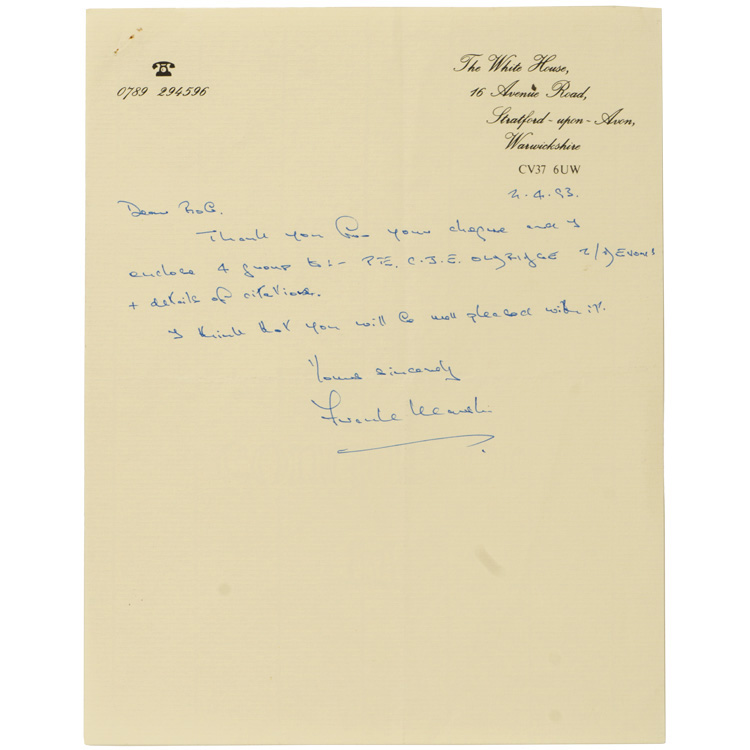 0789 294596
The White House,
16 Avenue Road,
Stratford-upon-Avon,
Warwickshire
CV37 6UW
2.4.93.
Dear Bob.
Thank you for your cheque and I
enclose 4 group to:- PTE. C.J.E. OLDRIDGE 2/DEVONS
+ details of citations.
I think that you will be well pleased with it.
Yours sincerely
Frank